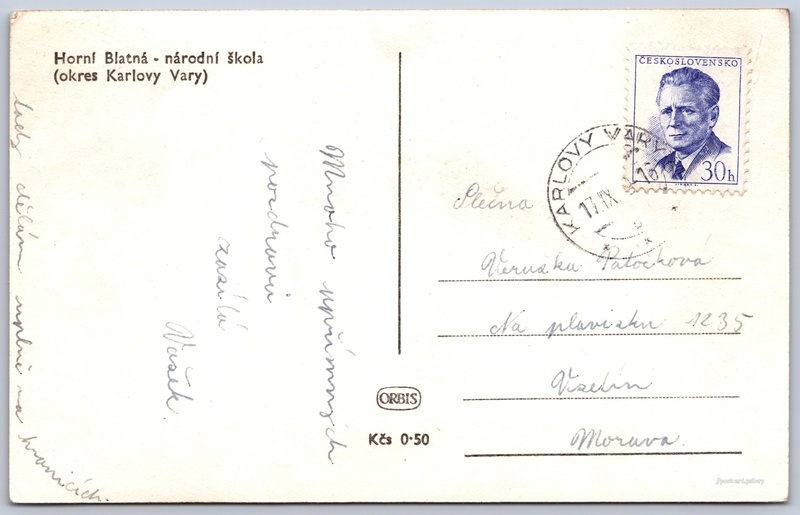 Horní Blatná - národní škola
(okres Karlovy Vary)
Mnoho upřímných
pozdravů
zasílá
Vašek.
tady dělám uplně na hranicích.
ČESKOSLOVENSKO
30h
KARLOVY VARY
17.IX
Slečna
Věruška Patočková
Na plavisku 1235
Vsetín
Morava.
ORBIS
Kčs 0·50